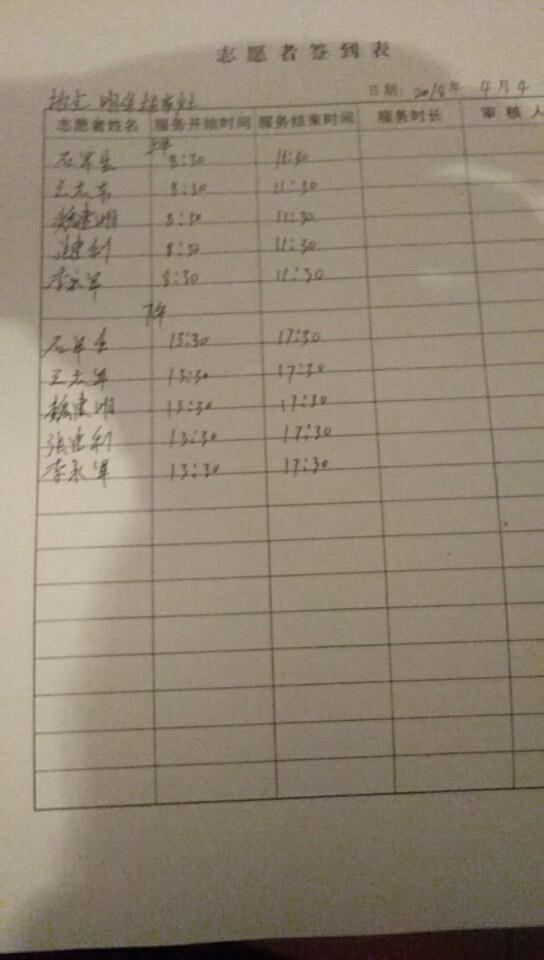 志愿者签到表
日期：2018年 4月4
志愿者姓名 服务开始时间 服务结束时间 服务时长 审核人
上午
石军生 8:30 11:30
王志 8:30 11:30
魏建明 8:30 11:30
张建利 8:30 11:30
李永军 8:30 11:30
下午
石军生 13:30 17:30
王志军 13:30 17:30
魏建明 13:30 17:30
张建利 13:30 17:30
李永军 13:30 17:30